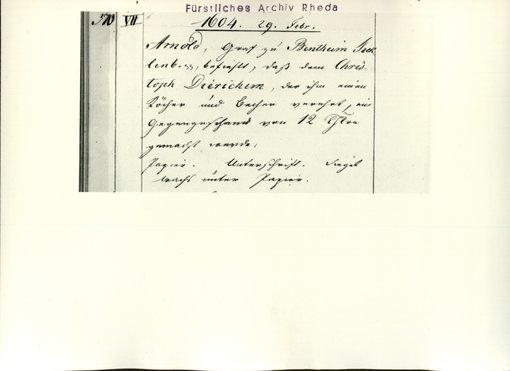 Fürstliches Archiv Rheda
570 VII 1604. 29. Febr.
Arnold, Graf zu Bentheim Teck-
lenb., befiehlt, daß dem Chris-
toph Dierichem, der ihm einen
Köcher und Becher verehrt, ein
Gegengeschenk von 12 Thlrn
gemacht werde.
Papier. Unterschrift. Siegel
wachs unter Papier.